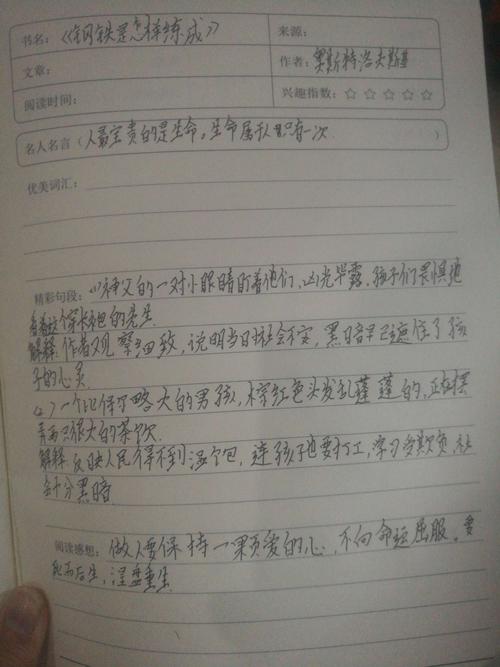 书名：《钢铁是怎样练成》
来源：
文章：
作者：奥斯特洛夫斯基
阅读时间：
兴趣指数：☆ ☆ ☆ ☆ ☆
名人名言（人最宝贵的是生命。生命属于人只有一次）
优美词汇：
精彩句段：(1)神父的一对小眼睛盯着他们，凶光毕露。孩子们畏惧地
看着这个穿长袍的先生
解释：作者观察细致，说明当时社会不安，黑暗早已遮住了孩
子的心灵
(2)一个比保尔略大的男孩，棕红色头发乱蓬蓬的，正在摆
弄两只很大的茶饮
解释 反映人民得不到温饱，连孩子也要打工，
会十分黑暗
阅读感想：做人要保持一颗爱的心，不向命运屈服。要
死而后生，涅盘重生